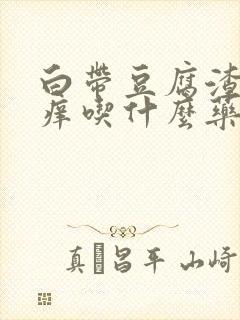 白帶豆腐渣
痒喫什麼藥
真 昌平 山崎